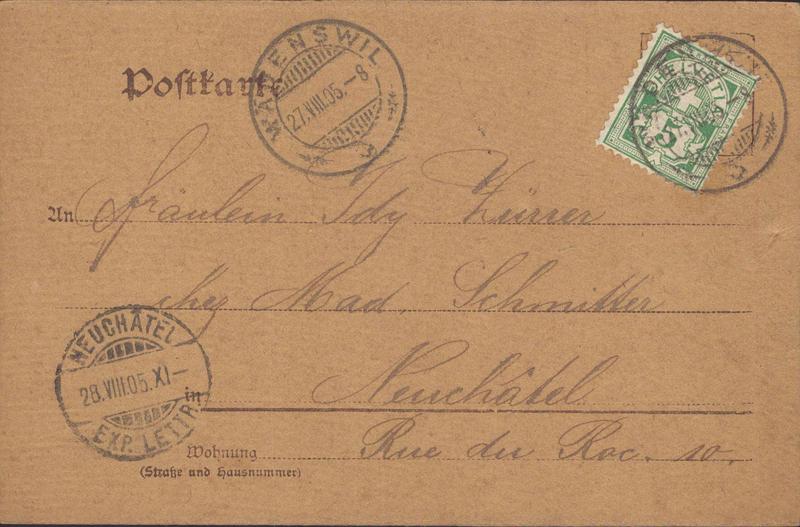 Postkarte
WÄDENSWIL
27.VIII.05.-8
HELVETIA
5
An Fräulein Idy Zürrer
chez Mad. Schmitter
NEUCHÂTEL
28.VIII.05.XI-
EXP. LETTR.
in Neuchâtel
Wohnung Rue du Roc. 10.
(Straße und Hausnummer)